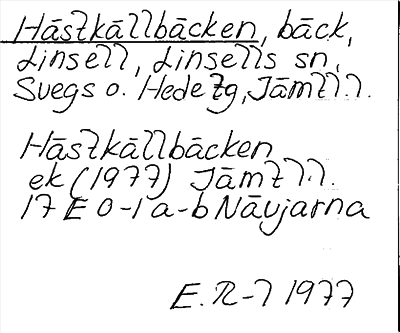 Hästkällbäcken, bäck,
Linsell, Linsells sn,
Svegs o. Hede tg, Jämtl.l.
Hästkällbäcken
ek (1977) Jämtl.l.
17 E 0-1 a-b Nävjarna
E.R-l 1977